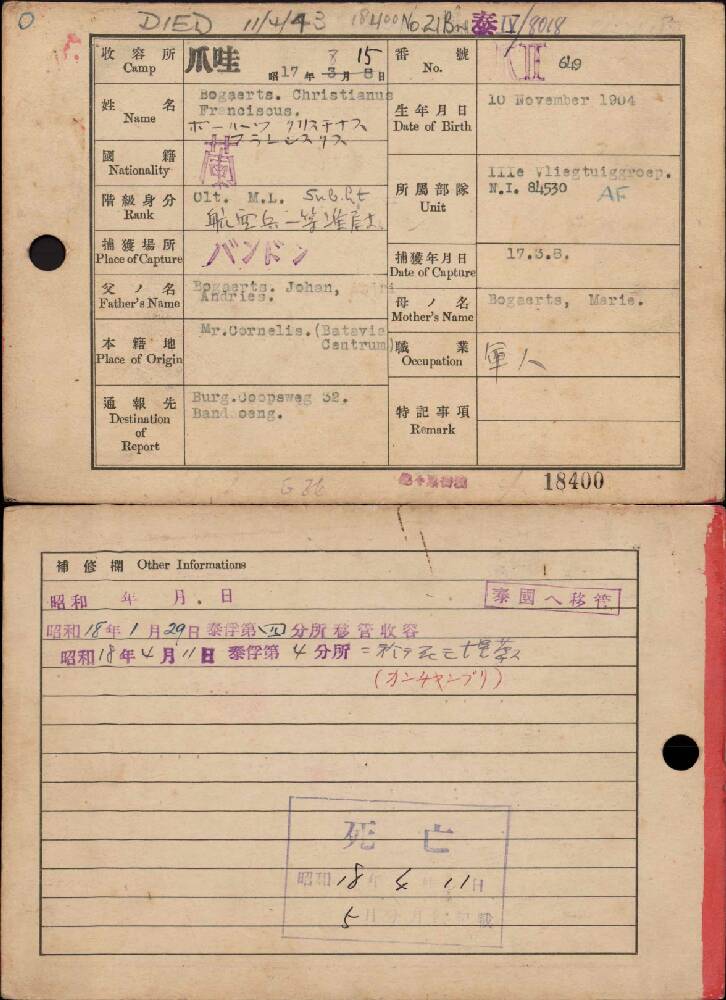 DIED 11/4/43 18400 No 21 Bn 泰 IV/8018
收容所 Camp 爪哇 昭17年3月8日 8 15
番號 No. XII 649
姓名 Name Bogaerts. Christianus
Franciscus.
生年月日 Date of Birth 10 November 1904
國籍 Nationality 蘭
階級身分 Rank Olt. M.L. Sub.Lt
所屬部隊 Unit IIIe Vliegtuiggroep.
N.I. 84530 AF
捕獲場所 Place of Capture バンドン
捕獲年月日 Date of Capture 17.3.8.
父ノ名 Father's Name Bogaerts. Johan,
Andries.
母ノ名 Mother's Name Bogaerts, Marie.
本籍地 Place of Origin Mr.Cornelis.(Batavia
Centrum)
職業 Occupation 軍人
通報先 Destination of Report Burg.Coopsweg 32.
Bandoeng.
特記事項 Remark
18400
補修欄 Other Informations
昭和 年 月 日
泰國ヘ移管
昭和18年1月29日 泰俘第四分所移管收容
昭和18年4月11日 泰俘第4分所ニ於テ
(カンチャンブリ)
死亡
昭和18年4月11日
5月分月